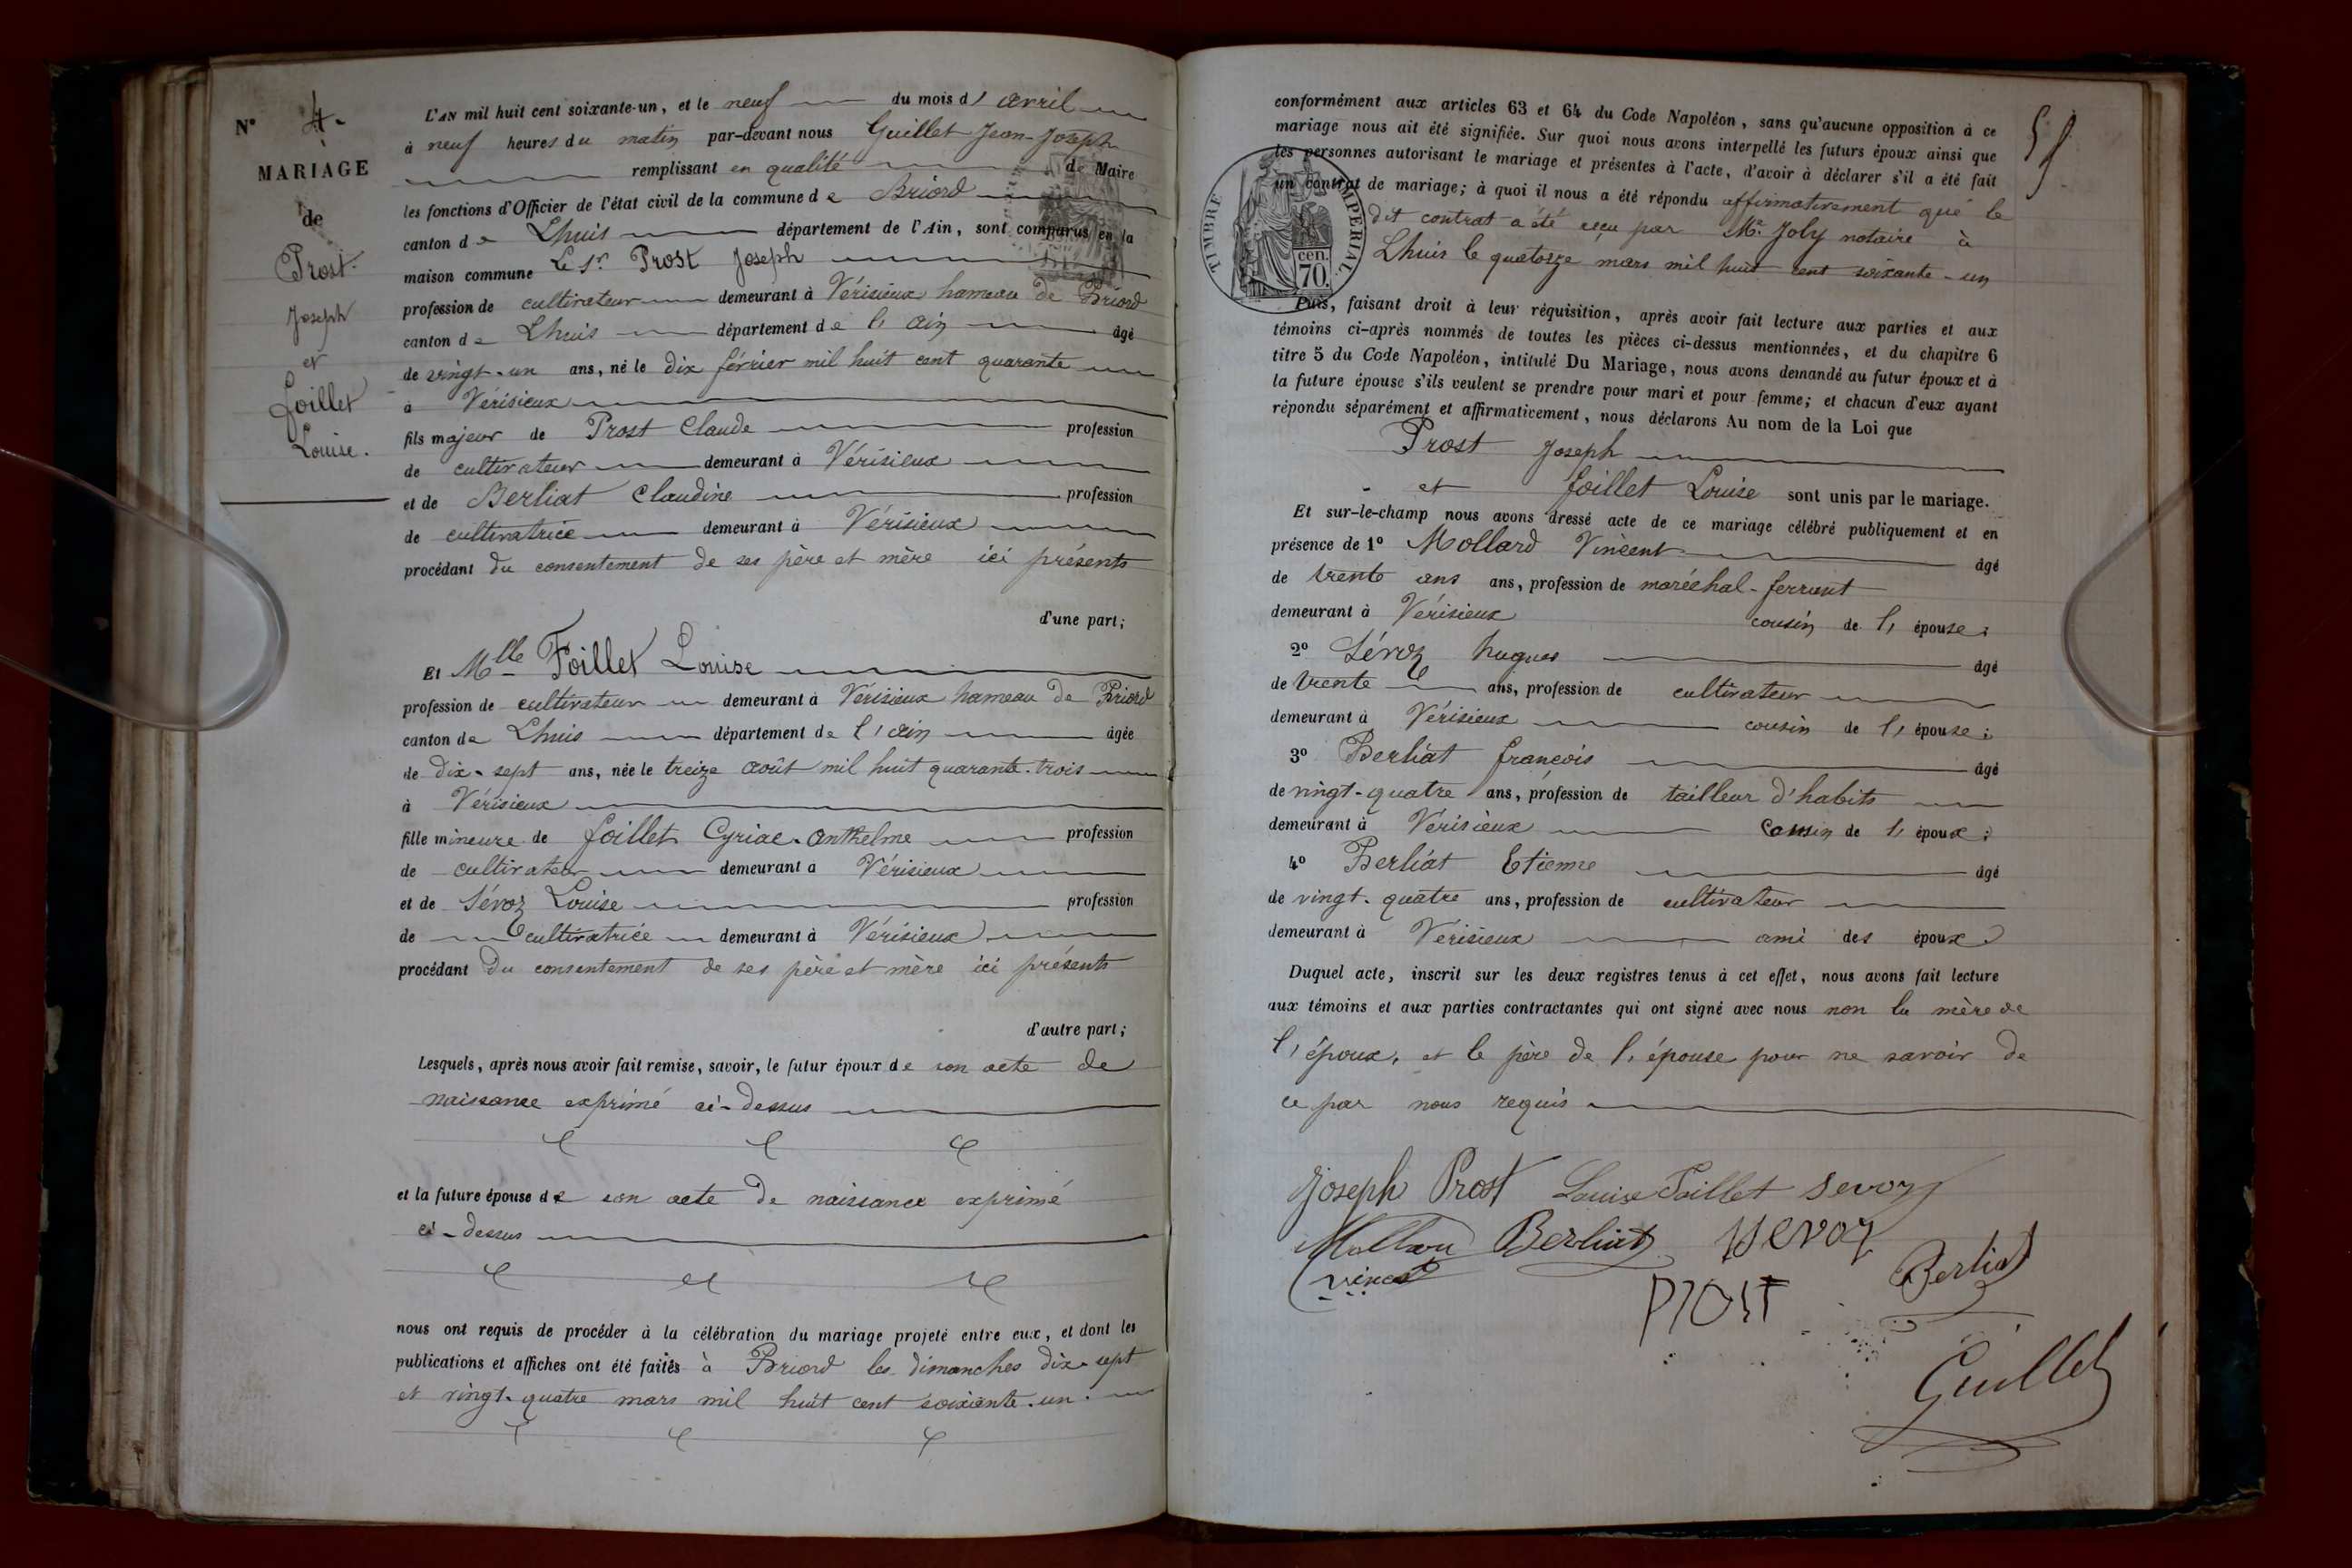 N° 4.
MARIAGE
de
Prost
Joseph
et
Foillet
Louise.
L'AN mil huit cent soixante-un, et le neuf du mois d'avril
à neuf heures du matin par-devant nous Guillet Jean-Joseph
remplissant en qualité de Maire
les fonctions d'Officier de l'état civil de la commune de Briord
canton de Lhuis département de l'Ain, sont comparus en la
maison commune Le Sr Prost Joseph
profession de cultivateur demeurant à Vérisieux hameau de Briord
canton de Lhuis département de l'ain âgé
de vingt-un ans, né le dix février mil huit cent quarante
à Vérisieux
fils majeur de Prost Claude profession
de cultivateur demeurant à Vérisieux
et de Berliat Claudine profession
de cultivatrice demeurant à Vérisieux
procédant du consentement de ses père et mère ici présents
d'une part;
Et Mlle Foillet Louise
profession de cultivateur demeurant à Vérisieux hameau de Briord
canton de Lhuis département de l'ain âgée
de dix-sept ans, née le treize août mil huit quarante-trois
à Vérisieux
fille mineure de foillet Cyriac-anthelme profession
de cultivateur demeurant a Vérisieux
et de Sévoz Louise profession
de cultivatrice demeurant à Vérisieux
procédant du consentement de ses père et mère ici présents
d'autre part;
Lesquels, après nous avoir fait remise, savoir, le futur époux de son acte de
naissance exprimé ci-dessus
et la future épouse de son acte de naissance exprimé
ci-dessus
nous ont requis de procéder à la célébration du mariage projeté entre eux, et dont les
publications et affiches ont été faites à Briord les dimanches dix-sept
et vingt-quatre mars mil huit cent soixante-un.
conformément aux articles 63 et 64 du Code Napoléon, sans qu'aucune opposition à ce
mariage nous ait été signifiée. Sur quoi nous avons interpellé les futurs époux ainsi que
les personnes autorisant le mariage et présentes à l'acte, d'avoir à déclarer s'il a été fait
un contrat de mariage; à quoi il nous a été répondu affirmativement que le
dit contrat a été reçu par Me Joly notaire à
Lhuis le quatorze mars mil huit cent soixante-un
TIMBRE IMPÉRIAL
cen. 70.
Puis, faisant droit à leur réquisition, après avoir fait lecture aux parties et aux
témoins ci-après nommés de toutes les pièces ci-dessus mentionnées, et du chapitre 6
titre 5 du Code Napoléon, intitulé Du Mariage, nous avons demandé au futur époux et à
la future épouse s'ils veulent se prendre pour mari et pour femme; et chacun d'eux ayant
répondu séparément et affirmativement, nous déclarons Au nom de la Loi que
Prost Joseph
et foillet Louise sont unis par le mariage.
Et sur-le-champ nous avons dressé acte de ce mariage célébré publiquement et en
présence de 1° Mollard Vincent âgé
de trente ans ans, profession de maréchal-ferrant
demeurant à Vérisieux cousin de l'épouse;
2° Sévoz hugues âgé
de trente ans, profession de cultivateur
demeurant à Vérisieux cousin de l'épouse;
3° Berliat françois âgé
de vingt-quatre ans, profession de tailleur d'habits
demeurant à Vérisieux cousin de l'époux;
4° Berliat Etienne âgé
de vingt-quatre ans, profession de cultivateur
demeurant à Vérisieux ami des époux
Duquel acte, inscrit sur les deux registres tenus à cet effet, nous avons fait lecture
aux témoins et aux parties contractantes qui ont signé avec nous non la mère de
l'époux, et le père de l'épouse pour ne savoir de
ce par nous requis
Joseph Prost Louise Foillet Sevoz
Berliat Sevoz
Berliat
Prost
Guillet